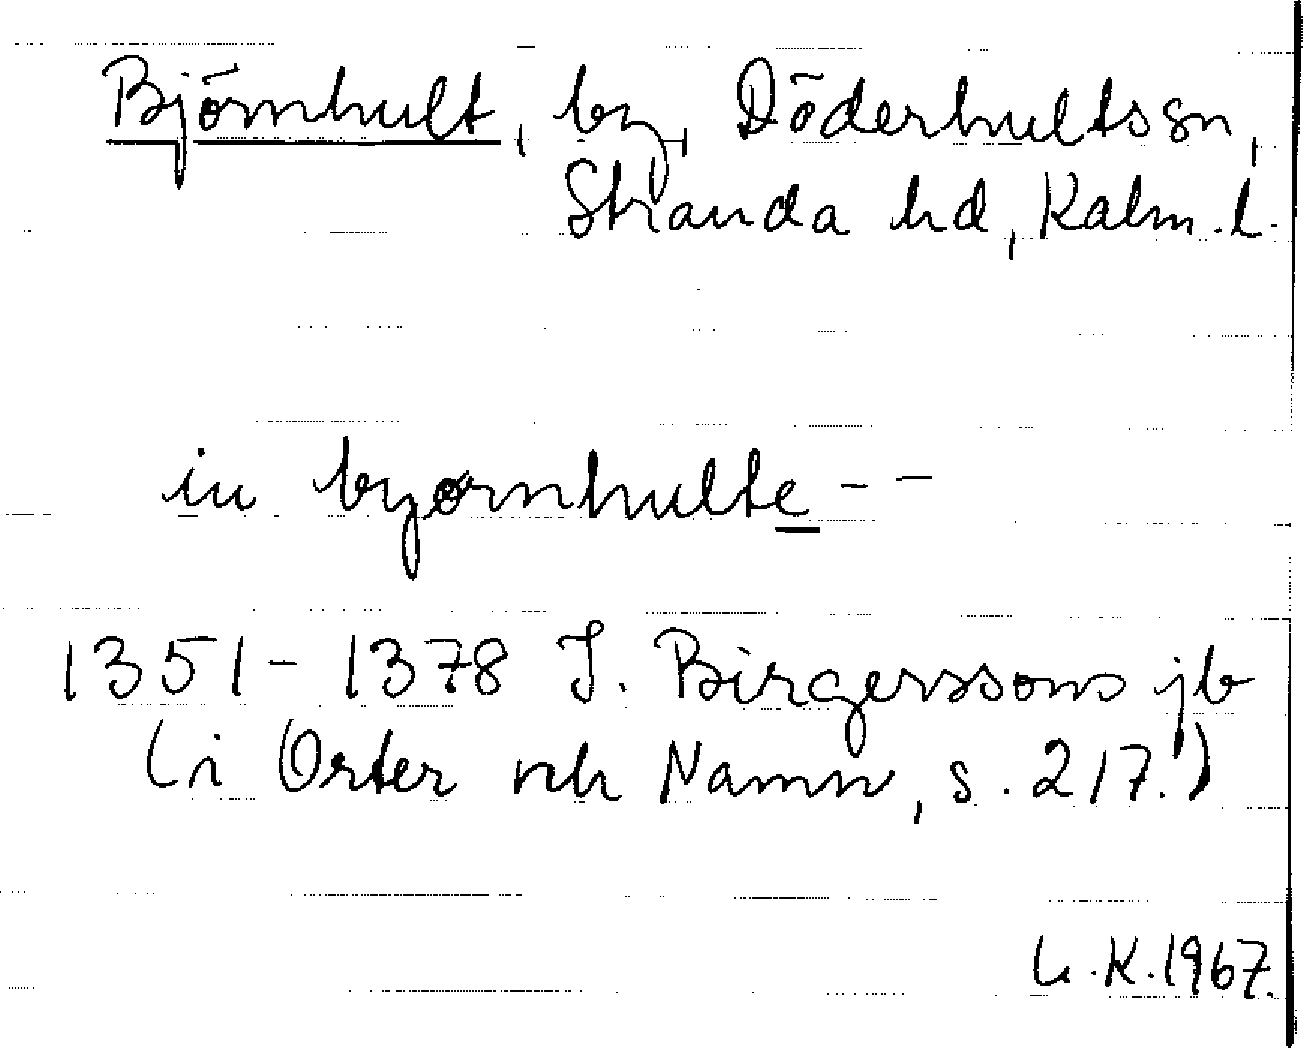 Björnhult, by, Döderhults sn,
Stranda hd, Kalm. l.
in byornhulte - -
1351-1378 J. Birgerssons jb
(i Orter och Namn, s. 217.)
L.K. 1967.